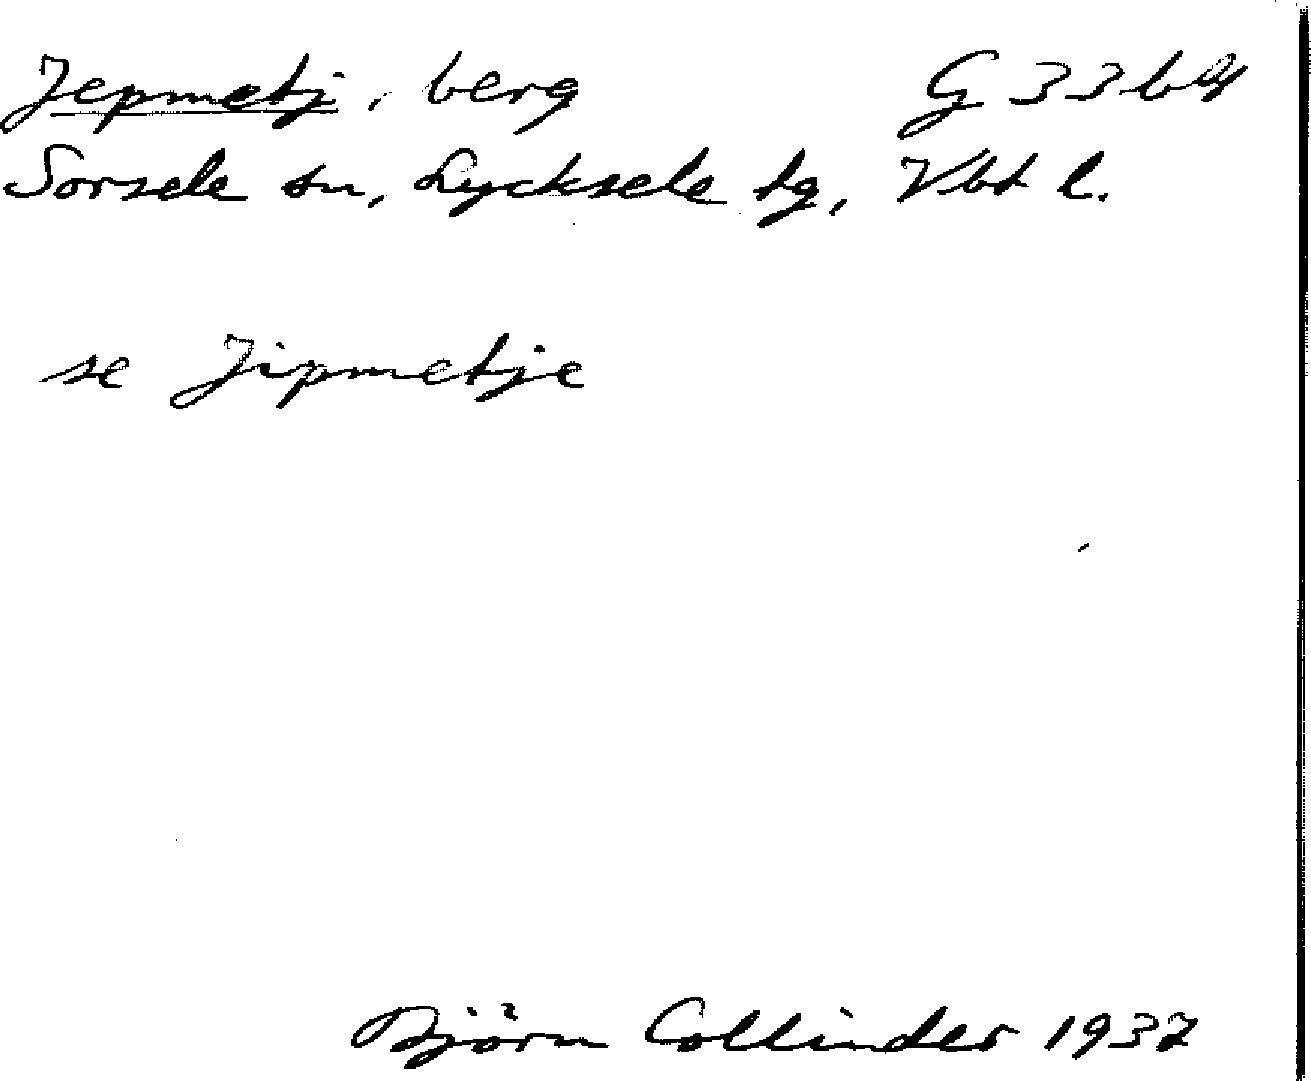 Jepmetj, berg G 33 b
Sorsele sn, Lycksele tg, Vbt l.
se Jipmetje
Björn Collinder 1937